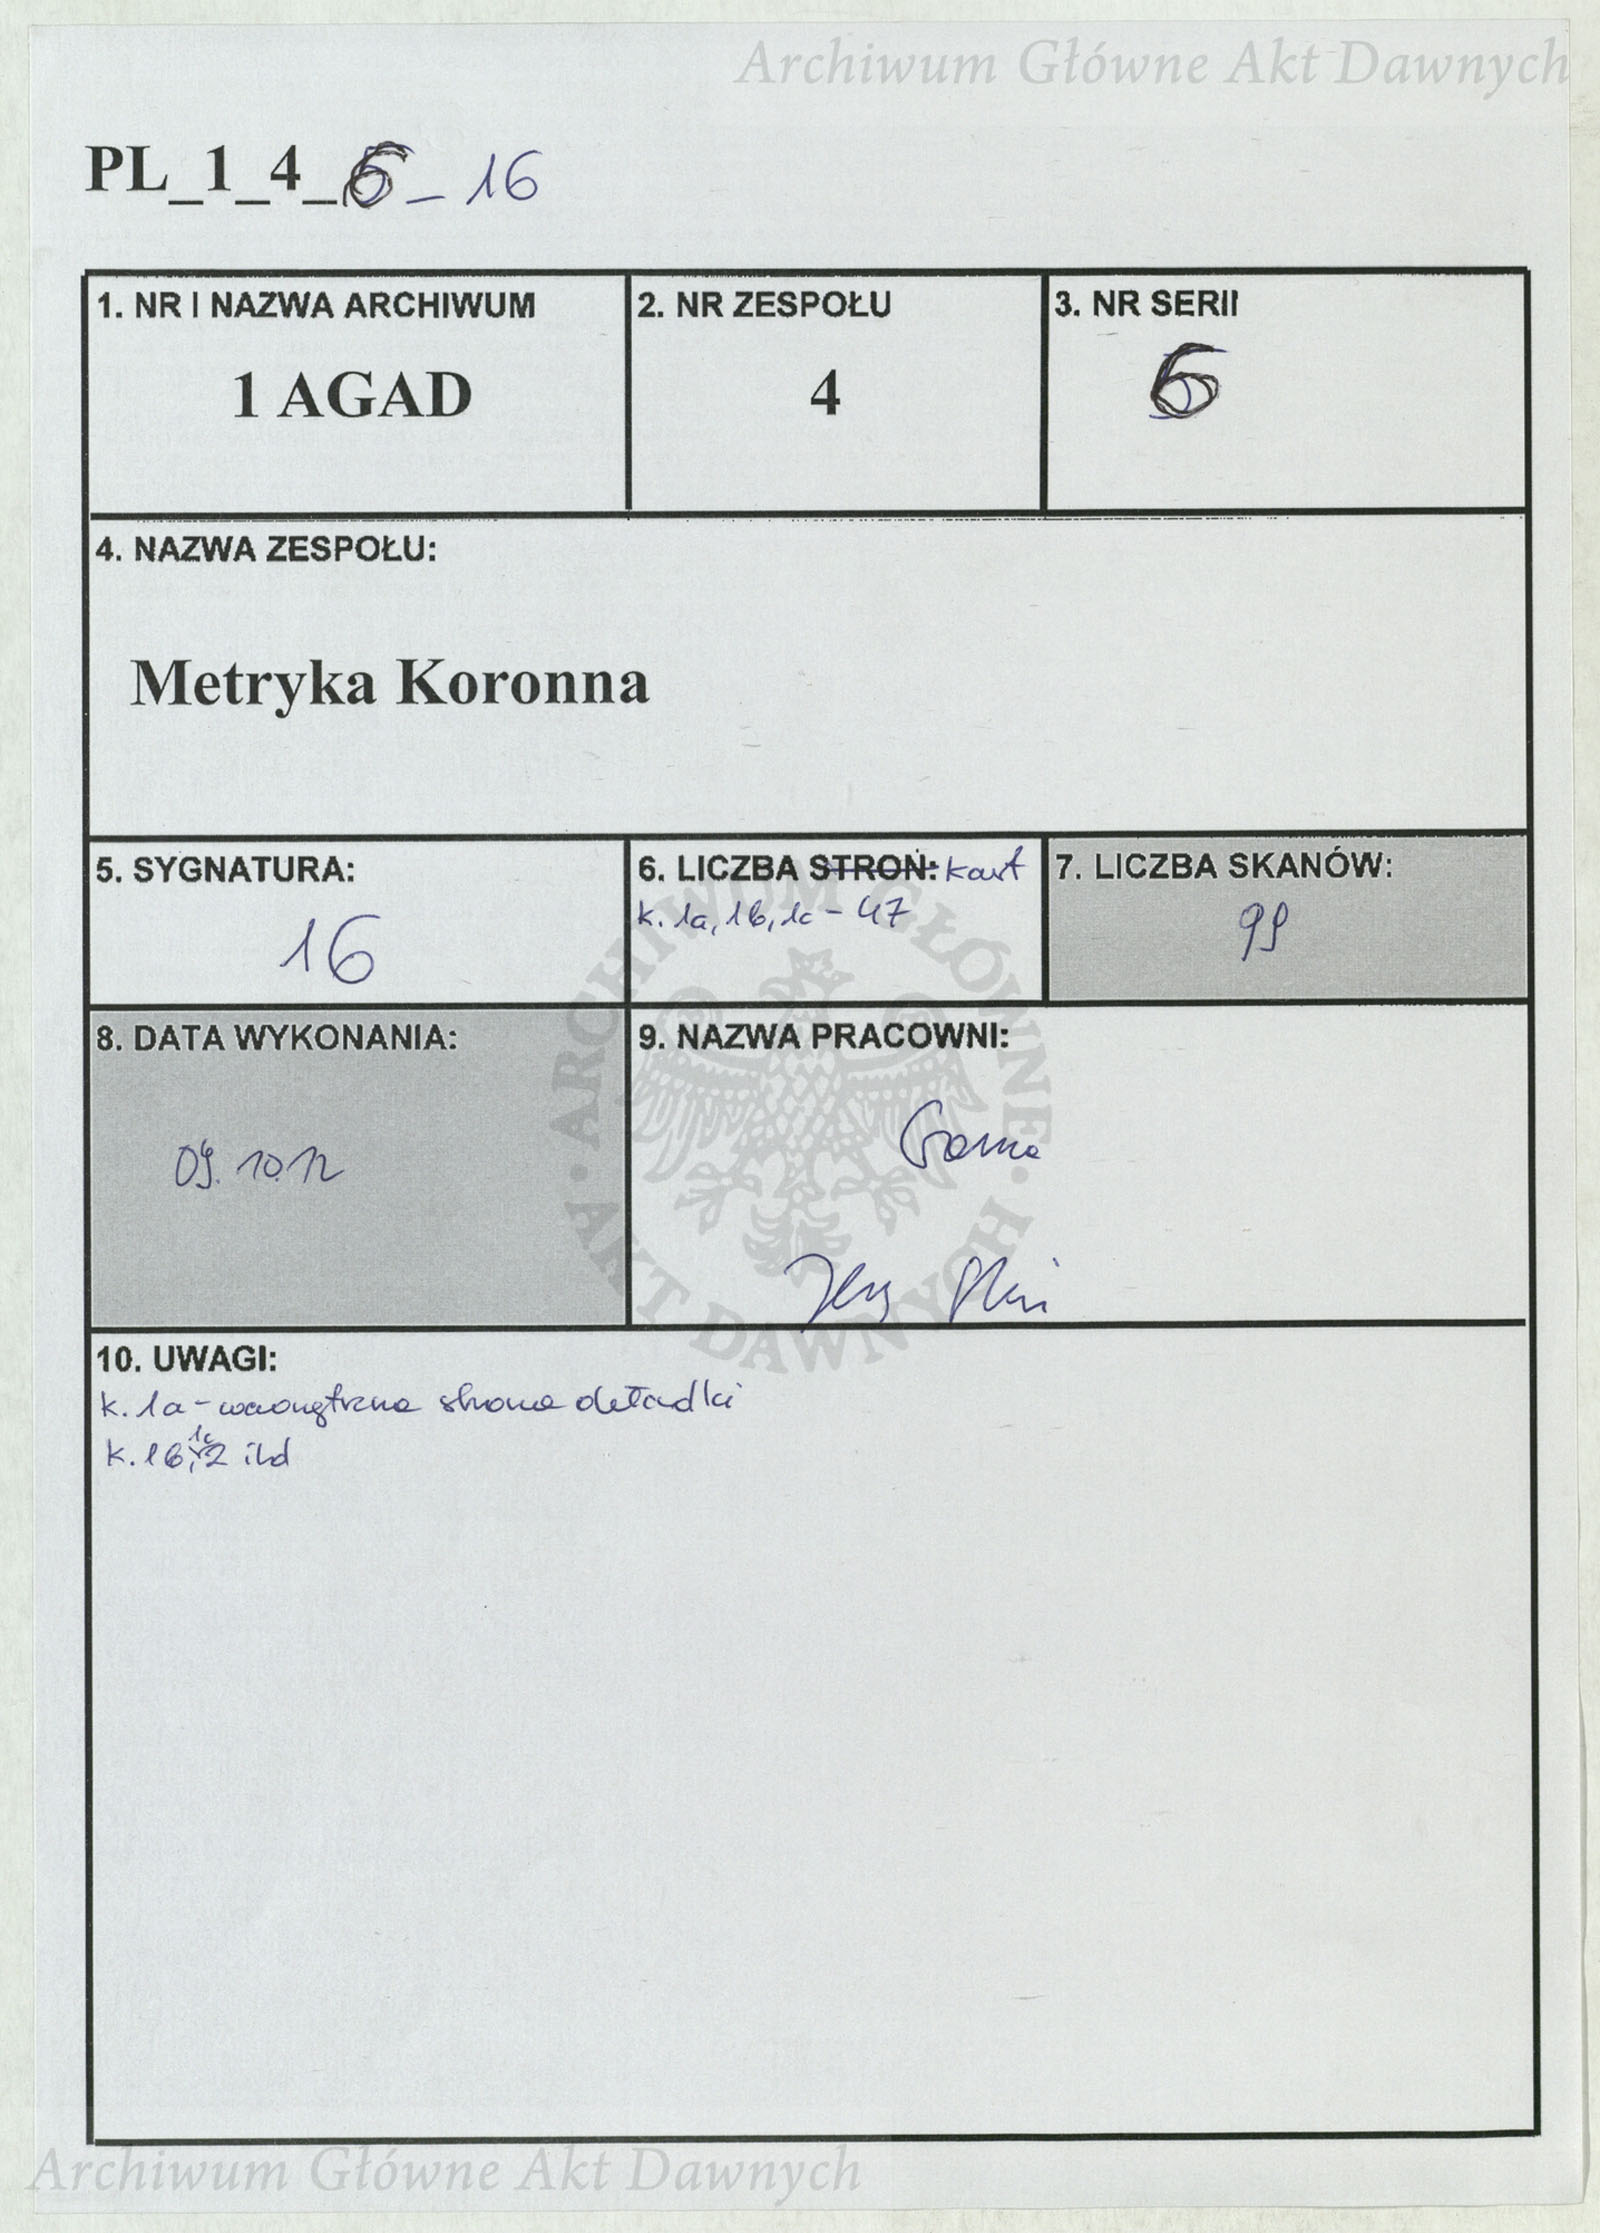 Archiwum Główne Akt Dawnych
PL_1_4_6_16
1. NR I NAZWA ARCHIWUM
1 AGAD
2. NR ZESPOŁU
4
3. NR SERII
6
4. NAZWA ZESPOŁU:
Metryka Koronna
5. SYGNATURA:
16
6. LICZBA STRON: kart
k. 1a, 1b, 1c - 47
7. LICZBA SKANÓW:
99
8. DATA WYKONANIA:
09.10.12
9. NAZWA PRACOWNI:
10. UWAGI:
k. 1a - wewnętrzna strona okładki
k. 1b, 1c, 2 ild
ARCHIWUM GŁÓWNE
AKT DAWNYCH
Archiwum Główne Akt Dawnych